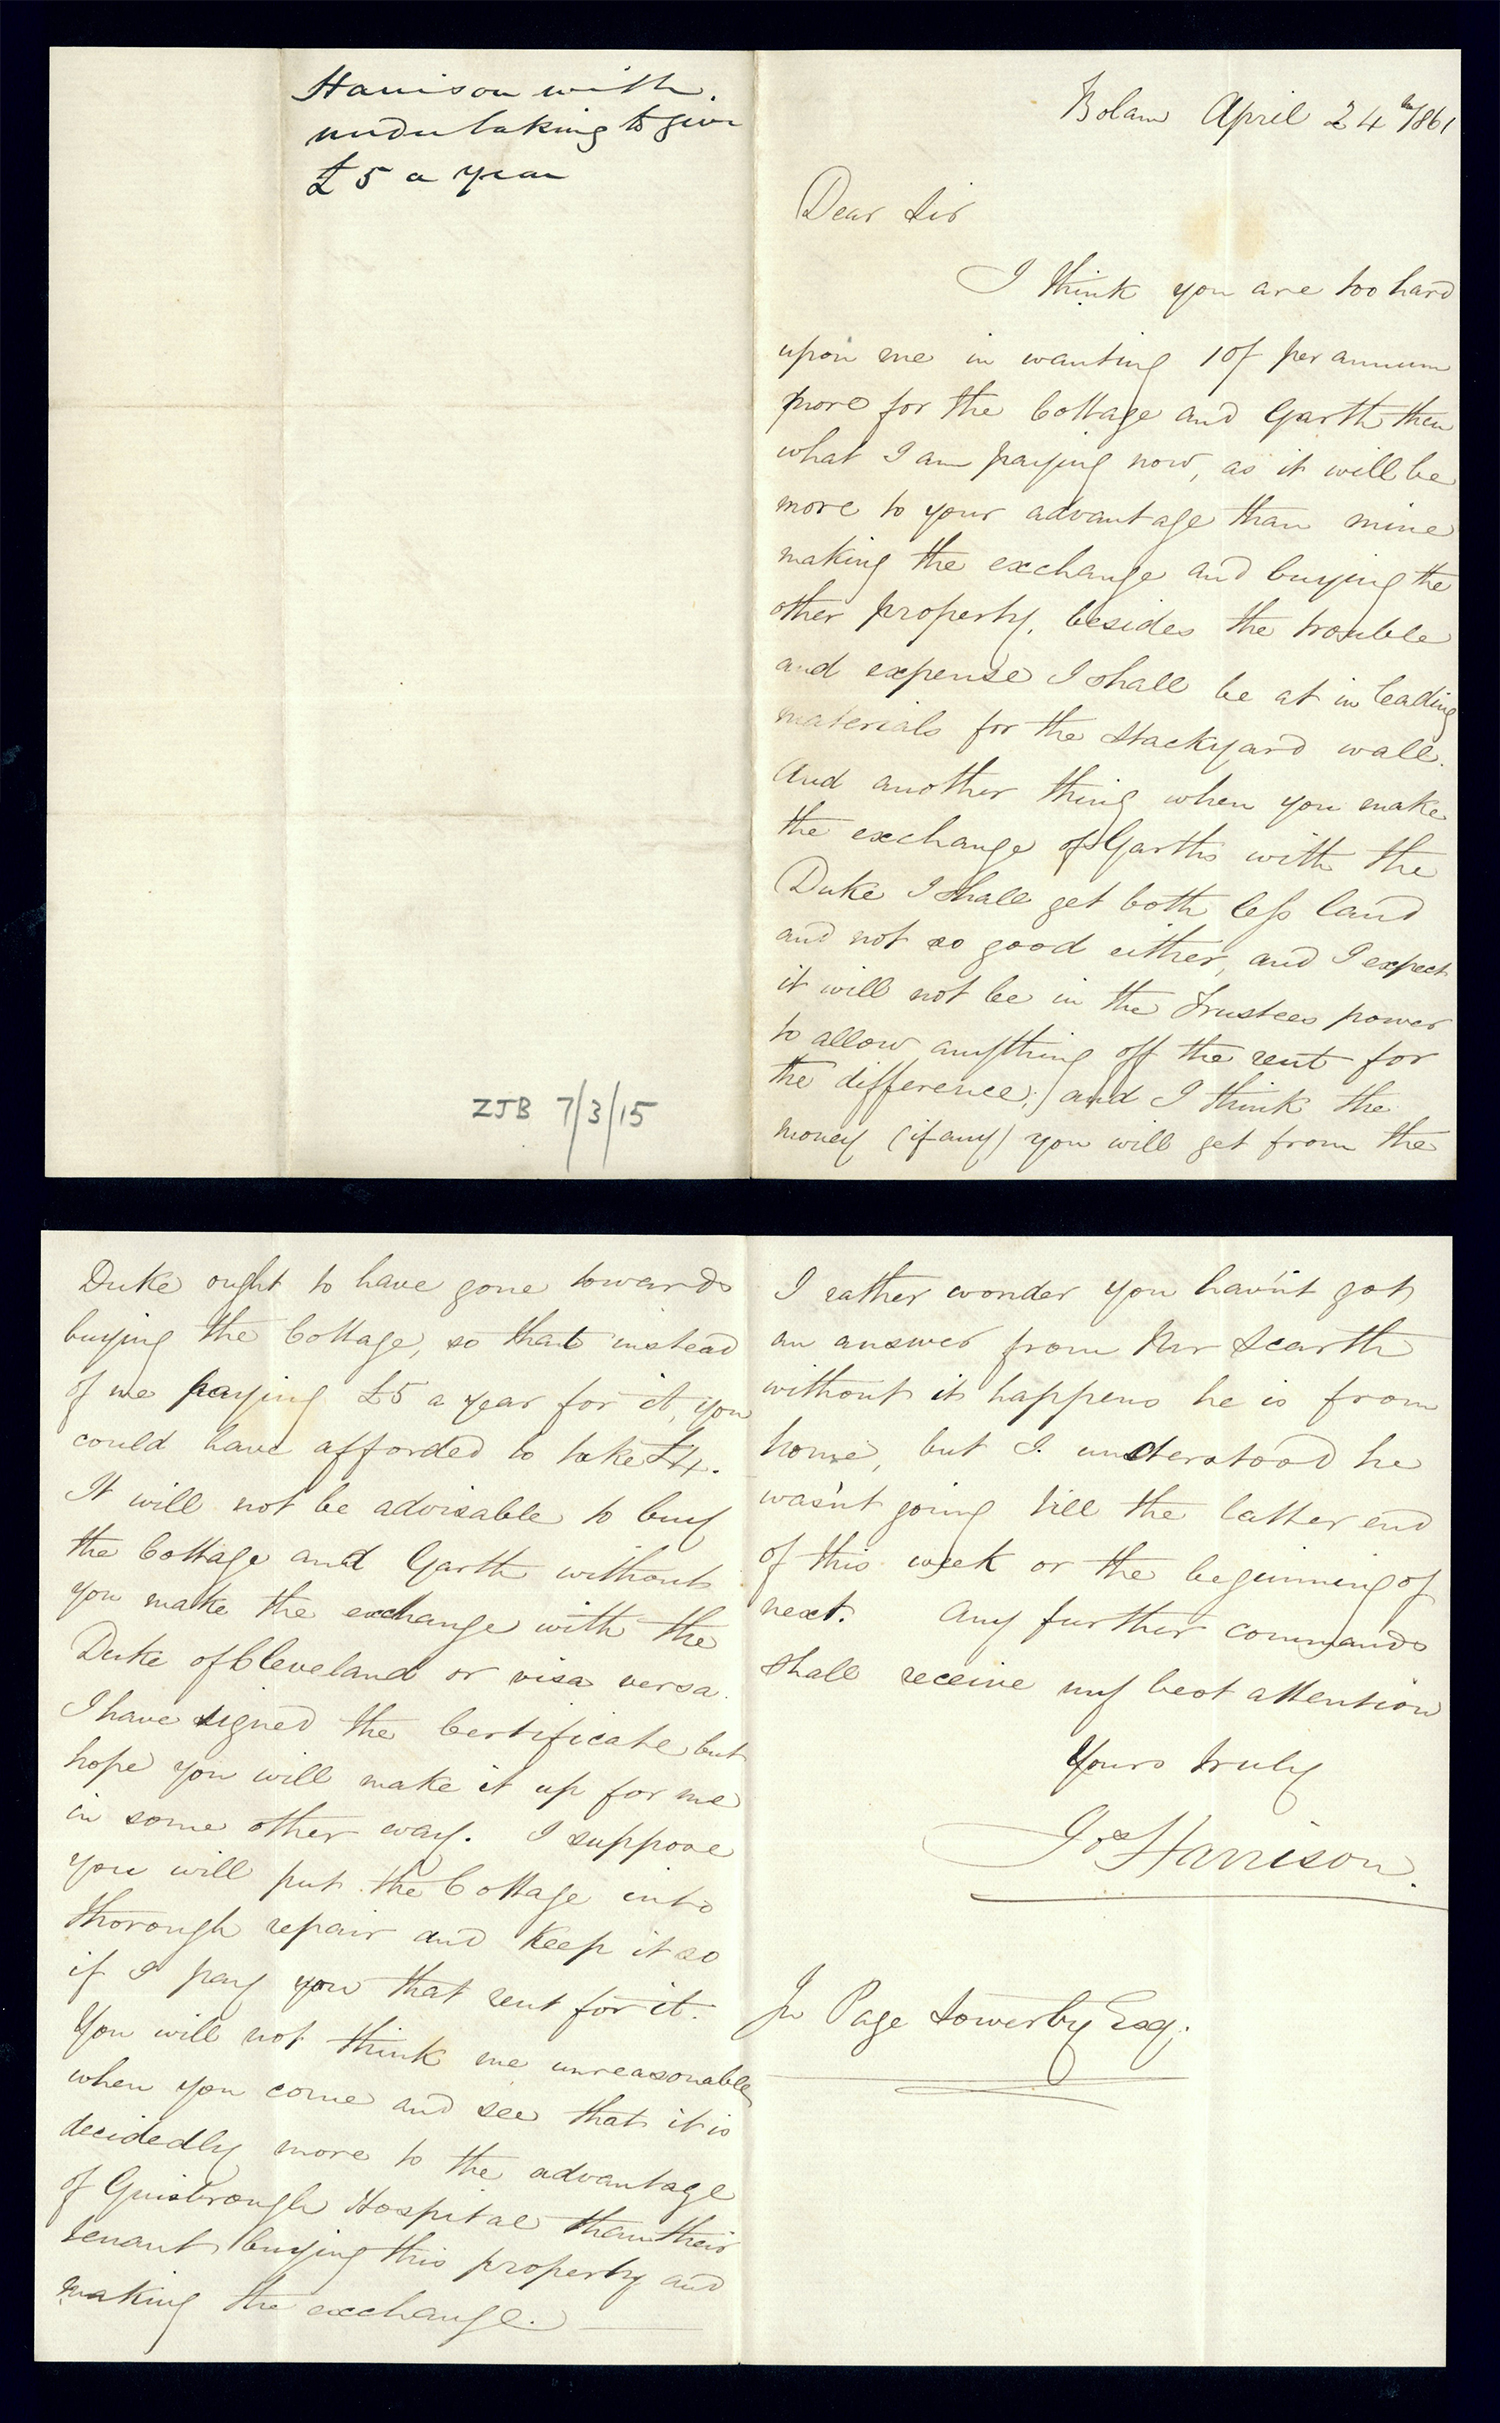 Harrison with
undertaking to give
£5 a year
ZJB 7/3/15
Bolam April 24th/1861
Dear Sir
I think you are too hard
upon me in wanting 10/ per annum
more for the Cottage and Garth then
what I am paying now, as it will be
more to your advantage than mine
making the exchange and buying the
other property, besides the trouble
and expense I shall be at in leading
materials for the Stackyard wall.
And another thing when you make
the exchange of Garths with the
Duke I shall get both less land
and not so good either, and I expect
it will not be in the Trustees power
to allow anything off the rent for
the difference; and I think the
money (if any) you will get from the
Duke ought to have gone towards
buying the Cottage, so that instead
of me paying £5 a year for it, you
could have afforded to take £4.
It will not be advisable to buy
the Cottage and Garth without
you make the exchange with the
Duke of Cleveland or visa versa.
I have signed the Certificate but
hope you will make it up for me
in some other way. I suppose
you will put the Cottage into
thorough repair and keep it so
if I pay you that rent for it.
You will not think me unreasonable
when you come and see that it is
decidedly more to the advantage
of Guisbrough Hospital than their
tenant, buying this property and
making the exchange.
I rather wonder you hav'n't got
an answer from Mr Scarth
without it happens he is from
home, but I understood he
was'nt going till the latter end
of this week or the beginning of
next. Any further commands
shall receive my best attention
Yours truly
Jos Harrison.
Jn Page Sowerby Esq;